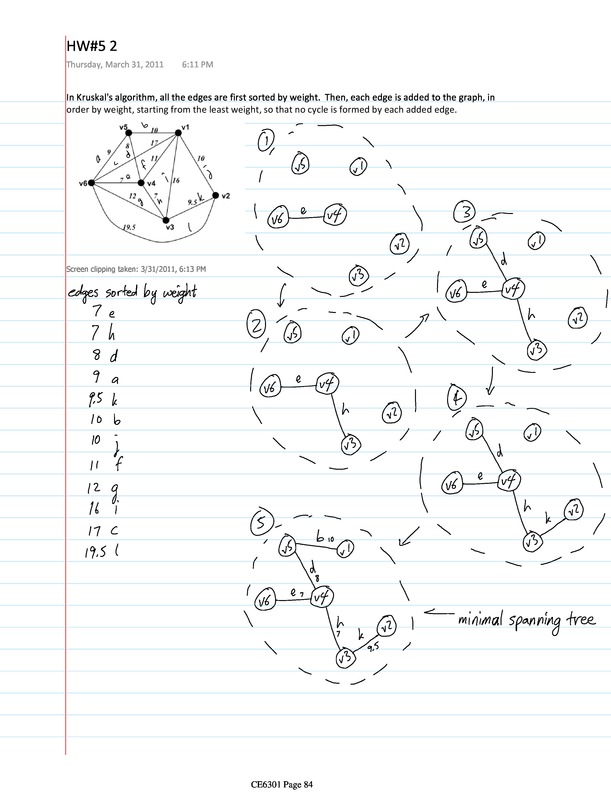 HW#5 2
Thursday, March 31, 2011 6:11 PM
In Kruskal's algorithm, all the edges are first sorted by weight. Then, each edge is added to the graph, in
order by weight, starting from the least weight, so that no cycle is formed by each added edge.
v5 b 10 v1
a 9 c d 8 17 f 11 i 16 10 j
v6 7 e v4 v2
12 g 7 h 9.5 k
v3
19.5 l
Screen clipping taken: 3/31/2011, 6:13 PM
edges sorted by weight
7 e
7 h
8 d
9 a
9.5 k
10 b
10 j
11 f
12 g
16 i
17 c
19.5 l
1
v5 v1
v6 e v4
v2
v3
2
v5 v1
v6 e v4
h v2
v3
3
v5 v1
d
v6 e v4
h v2
v3
4
v5 v1
d
v6 e v4
h k v2
v3
5
v5 b 10 v1
d 8
v6 e 7 v4
h 7 k 9.5 v2
v3
minimal spanning tree
CE6301 Page 84